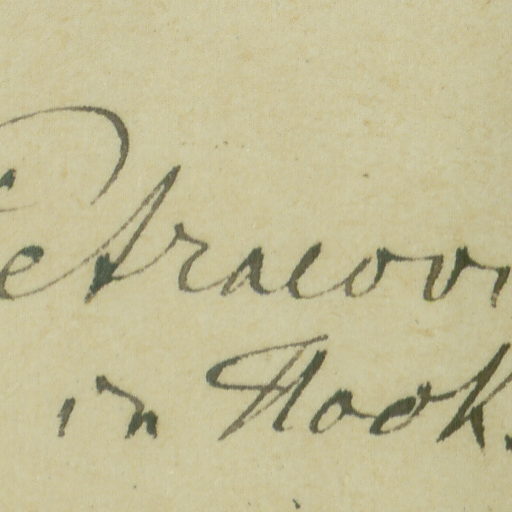 Petracovi
in Nook.